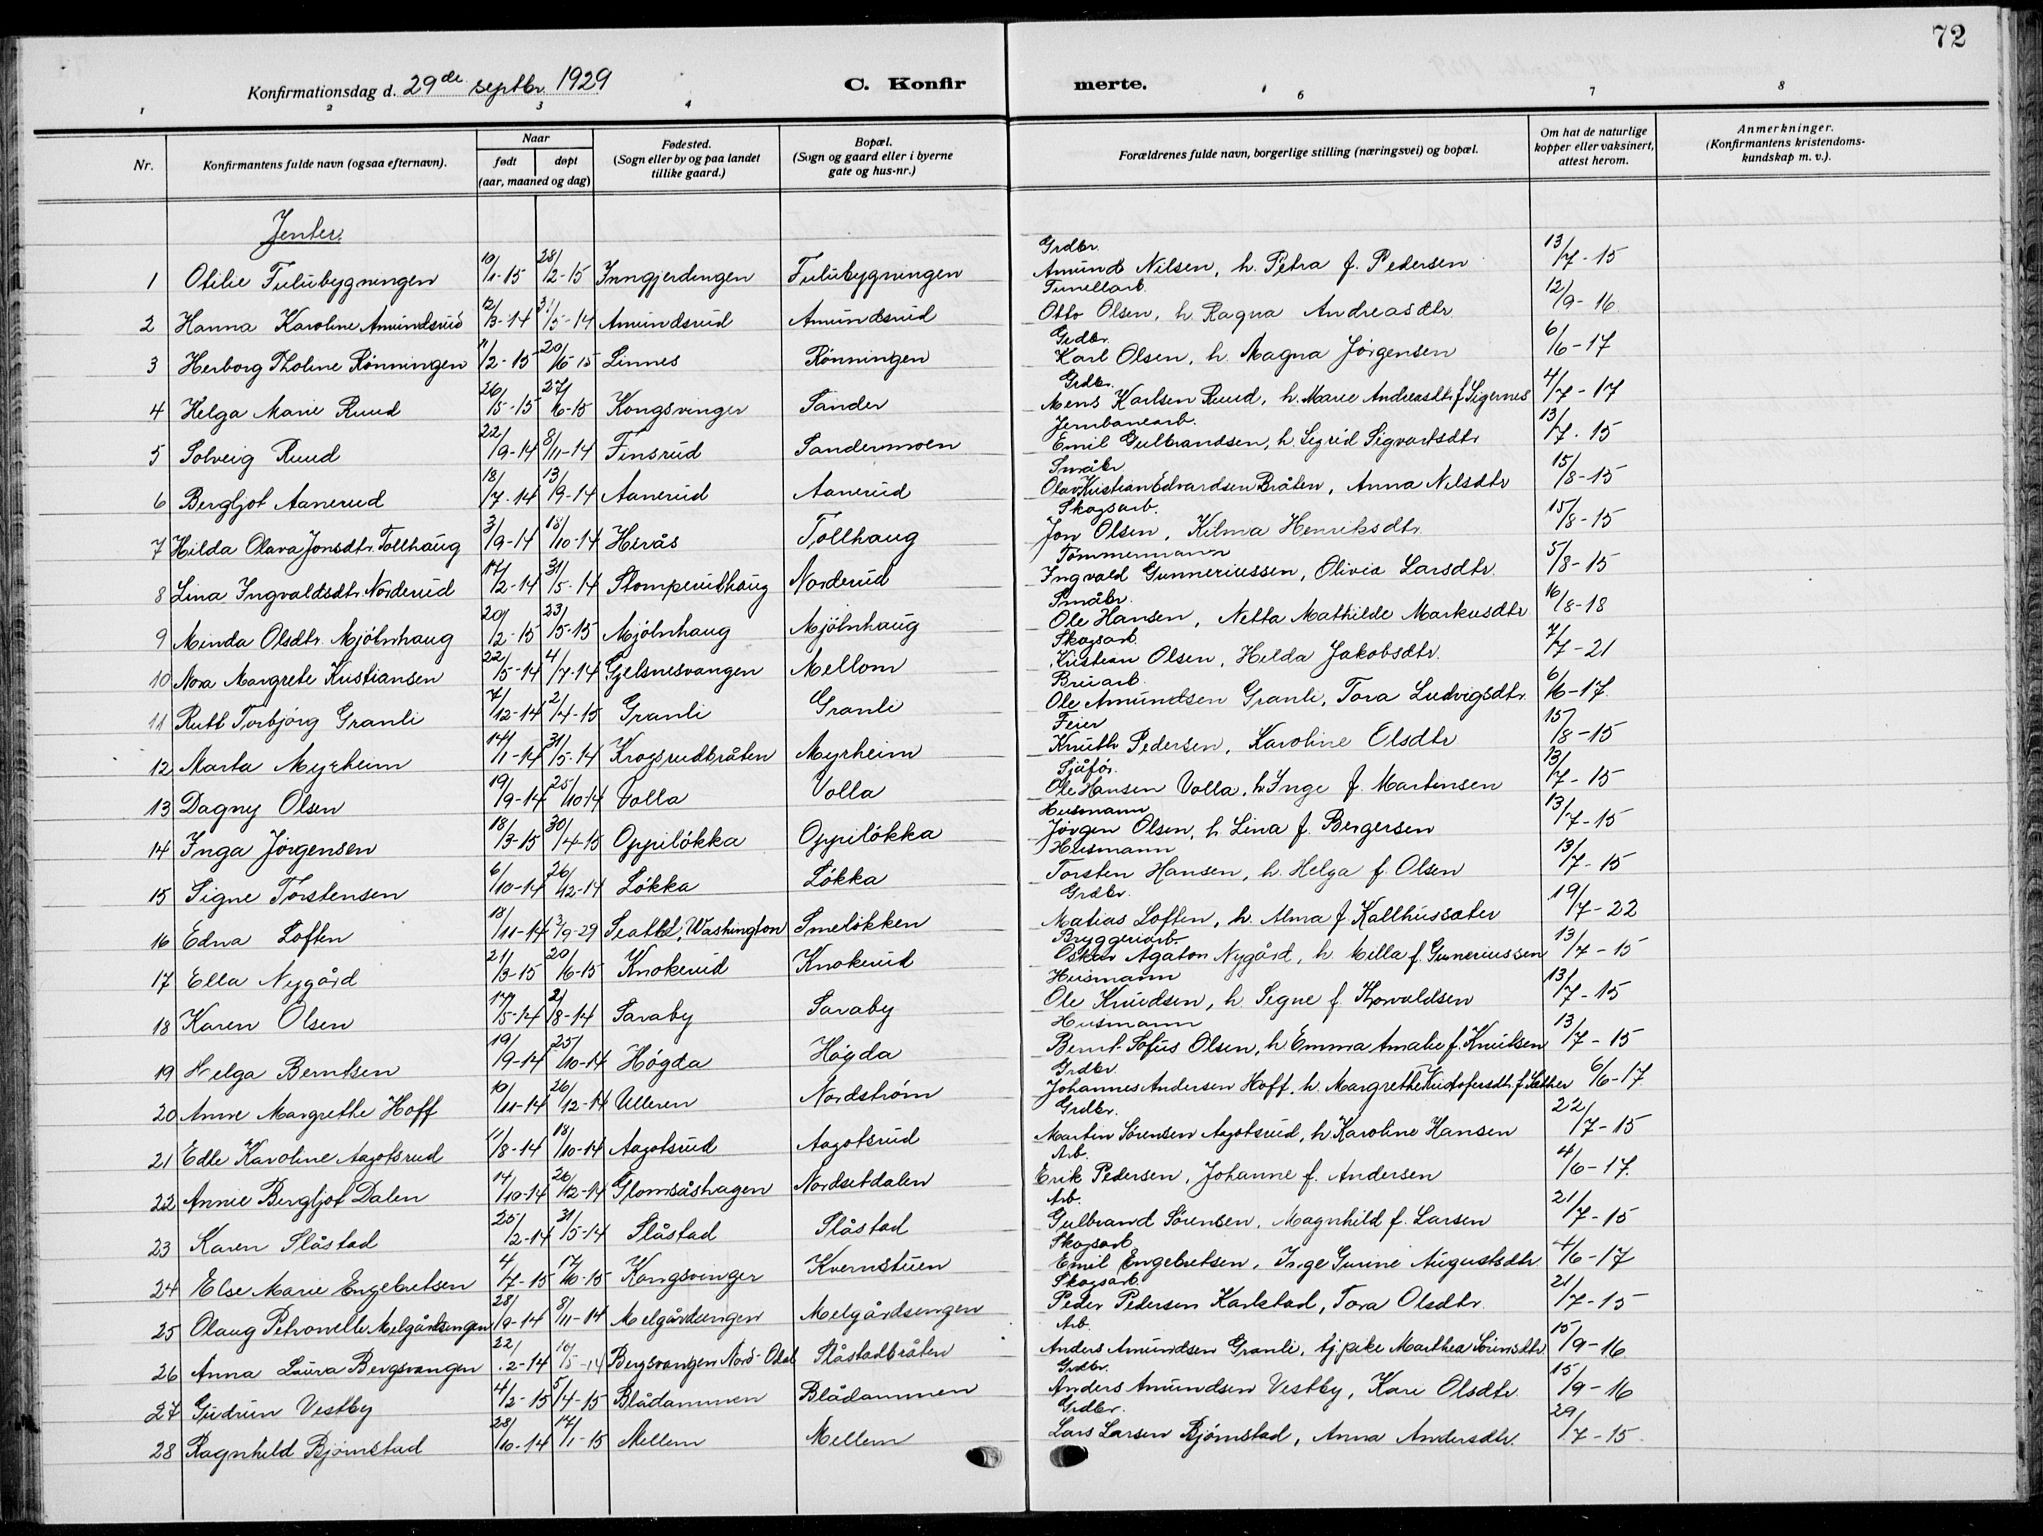 72
Konfirmationsdag d. 29de septbr. 1929 C. Konfir merte.
1 2 3 4 6 7 8
Nr. Konfirmantens fulde navn (ogsaa efternavn). Naar født døpt (aar, maaned og dag) Fødested. (Sogn eller by og paa landet tillike gaard.) Bopæl. (Sogn og gaard eller i byerne gate og hus-nr.) Forældrenes fulde navn, borgerlige stilling (næringsvei) og bopæl. Om hat de naturlige kopper eller vaksinert, attest herom. Anmerkninger. (Konfirmantens kristendoms-kundskap m. v.).
Jenter.
1 Otilie Fulubygningen 10/11-15 28/12-15 Inngjerdingen Fulubygningen Grdbr. Amund Nilsen, h. Petra f. Pedersen 13/7-15
2 Hanna Karoline Amundsrud 12/3-14 31/5-14 Amundsrud Amundsrud Tunellarb. Otto Olsen, h. Ragna Andreasdtr. 12/9-16
3 Herborg Tholine Rønningen 11/2-15 20/6-15 Linnes Rønningen Grdbr. Karl Olsen, h. Magna Jørgensen 6/6-17
4 Helga Marie Ruud 26/5-15 27/6-15 Kongsvinger Sander Grdbr. Mens Karlsen Ruud, h. Marie Andreasdtr f. Sigernes 4/7-17
5 Solveig Ruud 22/9-14 8/11-14 Finsrud Sandermoen Jernbanearb. Emil Gulbrandsen, h. Sigrid Sigvartsdtr 13/7-15
6 Bergljot Aanerud 18/7-14 13/9-14 Aanerud Aanerud Småbr. Olav Kristian Edvardsen Bråten, Anna Nilsdtr 15/8-15
7 Hilda Olava Jonsdtr. Tollhaug 3/9-14 18/10-14 Herås Tollhaug Skogsarb. Jon Olsen, Kilma Henriksdtr. 15/8-15
8 Lina Ingvaldsdtr. Norderud 17/2-14 31/5-14 Stomperudhaug Norderud Tømmermann Ingvald Gunneriussen, Olivia Larsdtr. 5/8-15
9 Minda Olsdtr. Mjølnhaug 20/2-15 23/5-15 Mjølnhaug Mjølnhaug Småbr. Ole Hansen, Netta Mathilde Markusdtr 16/8-18
10 Nora Margrete Kristiansen 22/5-14 4/7-14 Gjelsnesvangen Mellom Skogsarb. Kristian Olsen, Hilda Jakobsdtr. 7/7-21
11 Rutt Torbjørg Granli 7/12-14 2/4-15 Granli Granli Bruarb. Ole Amundsen Granli, Tora Ludvigsdtr. 6/6-17
12 Marta Myrheim 14/1-14 31/5-14 Krogsrudbråten Myrheim Feier Knuth Pedersen, Karoline Elsdtr 15/8-15
13 Dagny Olsen 19/9-14 25/10-14 Volla Volla Sjåfør. Ole Hansen Volla, h. Inge f. Martinsen 13/7-15
14 Inga Jørgensen 18/3-15 30/4-15 Oppiløkka Oppiløkka Husmann Jørgen Olsen, h. Lina f. Bergersen 13/7-15
15 Signe Torstensen 6/10-14 26/12-14 Løkka Løkka Husmann Torsten Hansen, h. Helga f. Olsen 13/7-15
16 Edna Loften 18/11-14 3/9-29 Seattel, Washington Smeløkken Grdbr. Matias Loften, h. Alma f. Kallhussæter 19/7-22
17 Ella Nygård 21/3-15 20/6-15 Knokerud Knokerud Bryggeriarb. Oskar Agaton Nygård, h. Milla f. Gunneriussen 13/7-15
18 Karen Olsen 17/5-14 2/8-14 Saraby Saraby Husmann Ole Knudsen, h. Signe f. Thorvaldsen 13/7-15
19 Helga Berntsen 19/9-14 25/10-14 Høgda Høgda Husmann Bernt Sofus Olsen, h. Emma Amalie f. Knutsen 13/7-15
20 Anne Margrethe Hoff 10/11-14 26/12-14 Ulleren Nordstrøm Grdbr. Johannes Andersen Hoff, h. Margrethe Kristofersdtr. f. Sæther 6/6-17
21 Edle Karoline Aagotsrud 11/8-14 18/10-14 Aagotsrud Aagotsrud Grdbr. Martin Sørensen Aagotsrud, h. Karoline Hansen 22/7-15
22 Annie Bergljot Dalen 14/10-14 26/12-14 Glomsåshagen Nordsetdalen Arb. Erik Pedersen, Johanne f. Andersen 4/6-17.
23 Karen Slåstad 25/2-14 31/5-14 Slåstad Slåstad Arb. Gulbrand Sørensen, Magnhild f. Larsen 21/7-15
24 Else Marie Engebretsen 4/7-15 17/10-15 Kongsvinger Kvernstuen Skogsarb Emil Engebretsen, Inge Gurine Augustsdtr. 4/6-17
25 Olaug Petronelle Melgårdsengen 28/9-14 8/11-14 Melgårdsengen Melgårdsengen Skogsarb. Peder Pedersen Karlstad, Tora Olsdtr. 21/7-15
26 Anna Laura Bergsvangen 22/2-14 10/5-14 Bergsvangen Nord-Odal Slåstadbråten Arb. Anders Amundsen Granli, tj. pike Marthea Sørensdtr 15/9-16
27 Gudrun Vestby 4/2-15 5/4-15 Blådammen Blådammen Grdbr. Anders Amundsen Vestby, Kari Olsdtr. 15/9-16
28 Ragnhild Bjørnstad 28/10-14 17/1-15 Mellem Mellem Grdbr. Lars Larsen Bjørnstad, Anna Andersdtr. 29/7-15